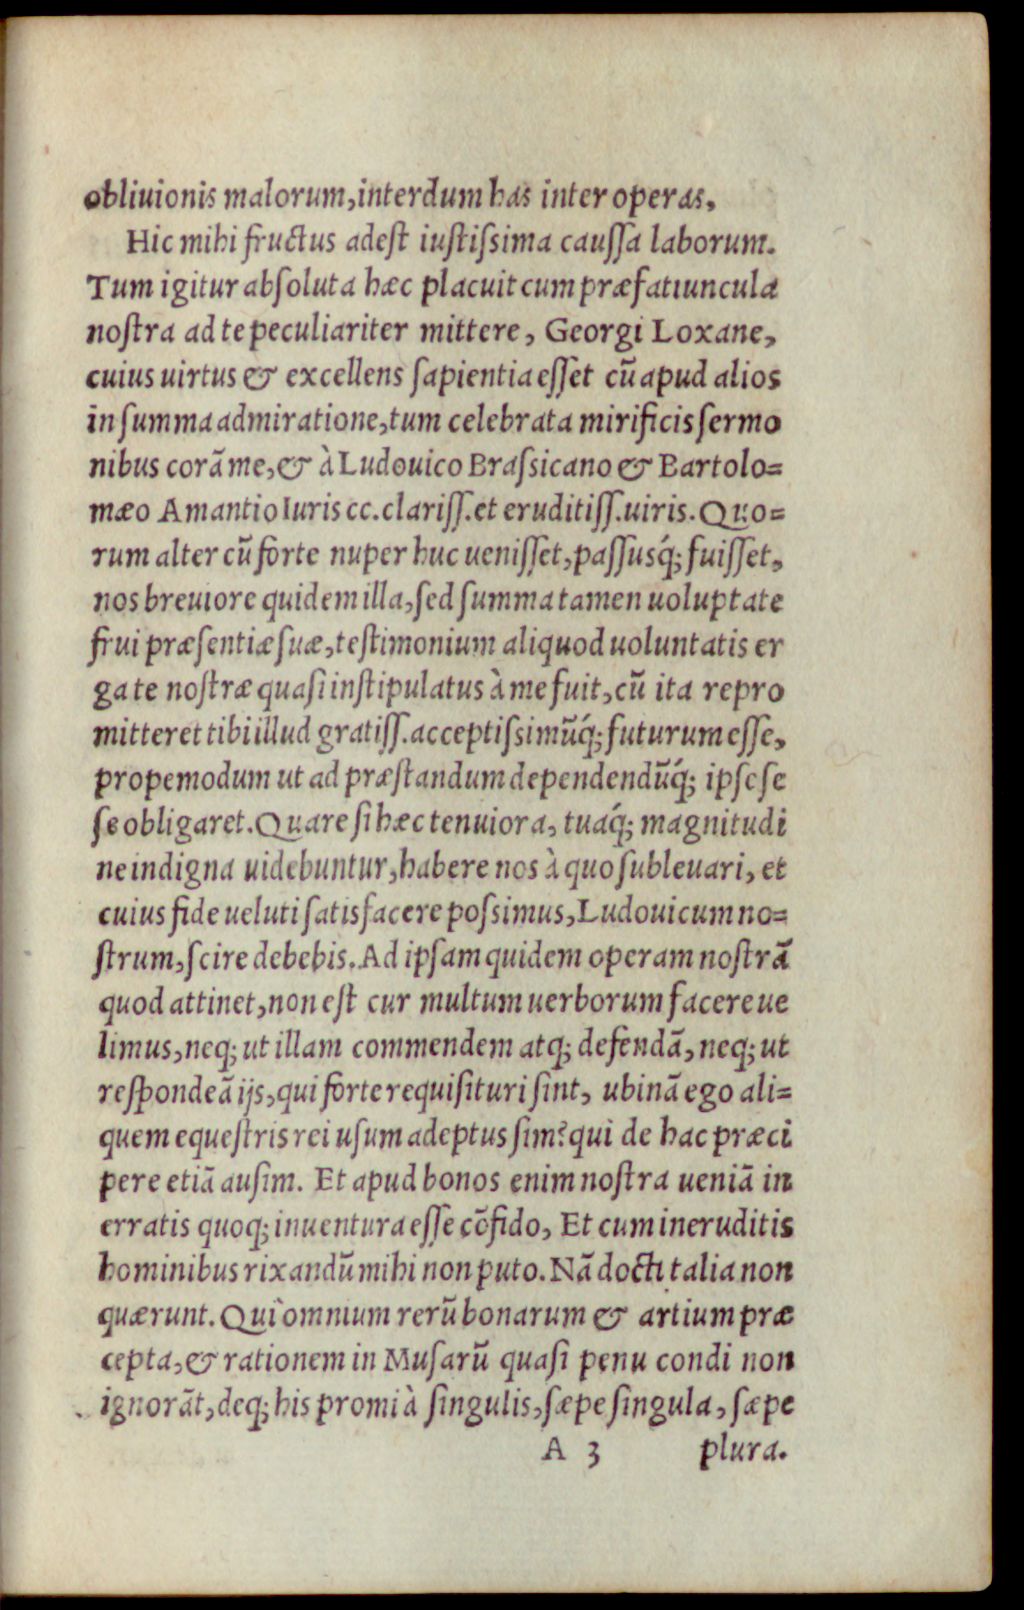 obliuionis malorum, interdum has inter operas,
Hic mihi fructus adeſt iuſtiſsima cauſſa laborum.
Tum igitur abſoluta hæc placuit cum præfatiuncula
noſtra ad te peculiariter mittere, Georgi Loxane,
cuius uirtus & excellens ſapientia eſſet cū apud alios
in ſumma admiratione, tum celebrata mirificis ſermo
nibus corā me, & à Ludouico Braſsicano & Bartolo=
mæo Amantio Iuris cc. clariſſ. et eruditiſſ. uiris. Quo=
rum alter cū forte nuper huc ueniſſet, paſſusq́; fuiſſet,
nos breuiore quidem illa, ſed ſumma tamen uoluptate
frui præſentiæ ſuæ, teſtimonium aliquod uoluntatis er
ga te noſtræ quaſi inſtipulatus à me fuit, cū ita repro
mitteret tibi illud gratiſſ. acceptiſsimūq́; futurum eſſe,
propemodum ut ad præſtandum dependendūq́; ipſe ſe
ſe obligaret. Quare ſi hæc tenuiora, tuaq́; magnitudi
ne indigna uidebuntur, habere nos à quo ſubleuari, et
cuius fide ueluti ſatisfacere poſsimus, Ludouicum no=
ſtrum, ſcire debebis. Ad ipſam quidem operam noſtrā
quod attinet, non eſt cur multum uerborum facere ue
limus, neq; ut illam commendem atq; defendā, neq; ut
reſpondeā ijs, qui forte requiſituri ſint, ubinā ego ali=
quem equeſtris rei uſum adeptus ſim? qui de hac præci
pere etiā auſim. Et apud bonos enim noſtra ueniā in
erratis quoq; inuentura eſſe cōfido, Et cum ineruditis
hominibus rixandū mihi non puto. Nā docti talia non
quærunt. Qui omnium rerū bonarum & artium præ
cepta, & rationem in Muſarū quaſi penu condi non
ignorāt, deq; his promi à ſingulis, ſæpe ſingula, ſæpe
A 3 plura.